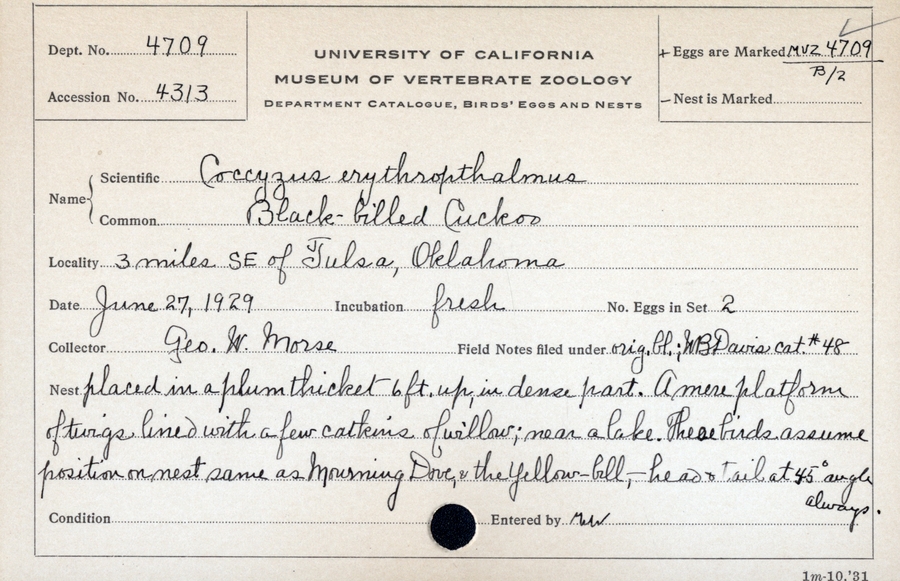 Dept. No. 4709
Accession No. 4313
UNIVERSITY OF CALIFORNIA
MUSEUM OF VERTEBRATE ZOOLOGY
DEPARTMENT CATALOGUE, BIRDS' EGGS AND NESTS
+ Eggs are Marked MVZ 4709
B/2
– Nest is Marked
Name
Scientific Coccyzus erythropthalmus
Common Black-billed Cuckoo
Locality 3 miles SE of Tulsa, Oklahoma
Date June 27, 1929 Incubation fresh No. Eggs in Set 2
Collector Geo. W. Morse Field Notes filed under orig. bl.; WB Davis cat. # 48
Nest placed in a plum thicket 6 ft. up, in dense part. A mere platform
of twigs lined with a few catkins of willow; near a lake. These birds assume
position on nest same as Mourning Dove, & the Yellow-bill, – head & tail at 45° angle
always.
Condition Entered by
1m-10.'31